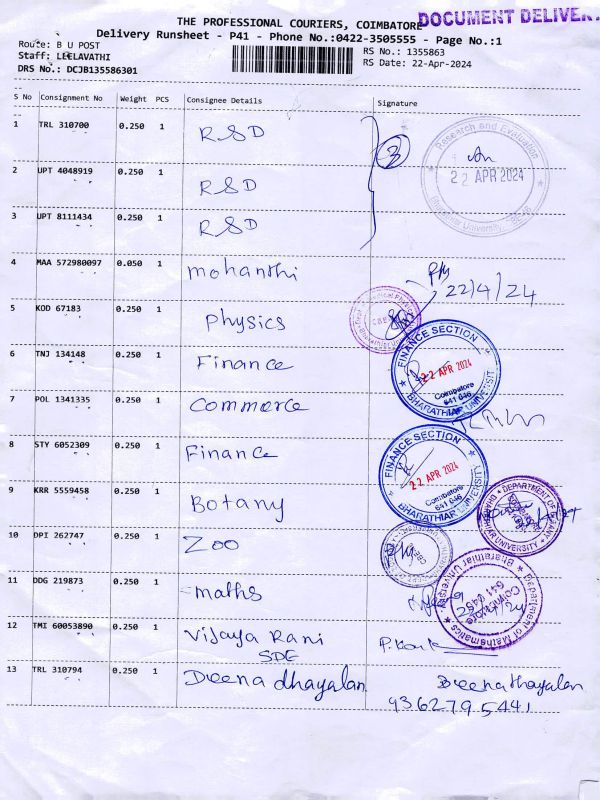 THE PROFESSIONAL COURIERS, COIMBATORE
DOCUMENT DELIVER
Delivery Runsheet - P41 - Phone No.:0422-3505555 - Page No.:1
Route: B U POST
Staff: LEELAVATHI
DRS No.: DCJB135586301
RS No.: 1355863
RS Date: 22-Apr-2024
S No Consignment No Weight PCS Consignee Details Signature
1 TRL 310700 0.250 1 RSD
3
Research and Evaluation
22 APR 2024
Bharathiar University
2 UPT 4048919 0.250 1 RSD
3 UPT 8111434 0.250 1 RSD
4 MAA 572980097 0.050 1 mohanthi
22/4/24
5 KOD 67183 0.250 1 Physics
FINANCE SECTION
22 APR 2024
Coimbatore
641 046
BHARATHIAR UNIVERSIT
6 TNJ 134148 0.250 1 Finance
7 POL 1341335 0.250 1 Commerce
8 STY 6052309 0.250 1 Finance
FINANCE SECTION
22 APR 2024
Coimbatore
641 046
BHARATHIAR UNIVERSIT
9 KRR 5559458 0.250 1 Botany
DEPARTMENT OF
UNIVERSITY
10 DPI 262747 0.250 1 Zoo
11 DDG 219873 0.250 1 maths
Department of Mathematics
Bharathiar University
Coimbatore
641 046
12 TMI 60053890 0.250 1 Vijaya Rani
SDE
13 TRL 310794 0.250 1 Deena dhayalan Deenathayalan
9362795441